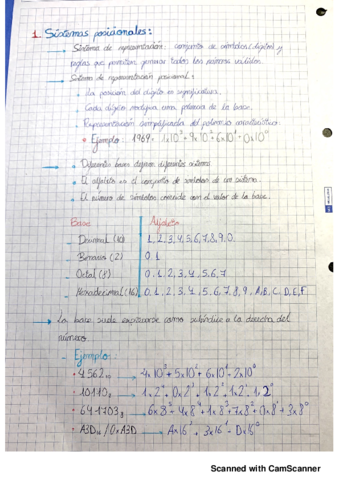 1. Sistemas posicionales:
→ Sistema de representación: conjunto de símbolos (dígitos) y
reglas que permiten generar todos los números válidos.
→ Sistema de representación posicional:
• La posición del dígito es significativa.
• Cada dígito multiplica una potencia de la base.
• Representación simplificada del polinomio característico.
* Ejemplo: 1969 = 1x10³+9x10²+6x10¹+9x10⁰
→ • Diferentes bases definen diferentes sistemas
• El alfabeto es el conjunto de símbolos de un sistema.
• El número de símbolos coincide con el valor de la base.
Base Alfabeto
– Decimal (10) 1,2,3,4,5,6,7,8,9,0
– Binario (2) 0,1
– Octal (8) 0,1,2,3,4,5,6,7
– Hexadecimal (16) 0,1,2,3,4,5,6,7,8,9,A,B,C,D,E,F
→ La base suele expresarse como subíndice a la derecha del
número.
– Ejemplo:
• 4562₁₀ → 4x10³+5x10²+6x10¹+2x10⁰
• 10110₂ → 1x2⁴
• 641703₈ → 6x8⁵+4x8⁴+1x8³+7x8²+0x8¹+3x8⁰
• A3D₁₆ / 0xA3D → Ax16² + 3x16¹ + Dx16⁰
Scanned with CamScanner